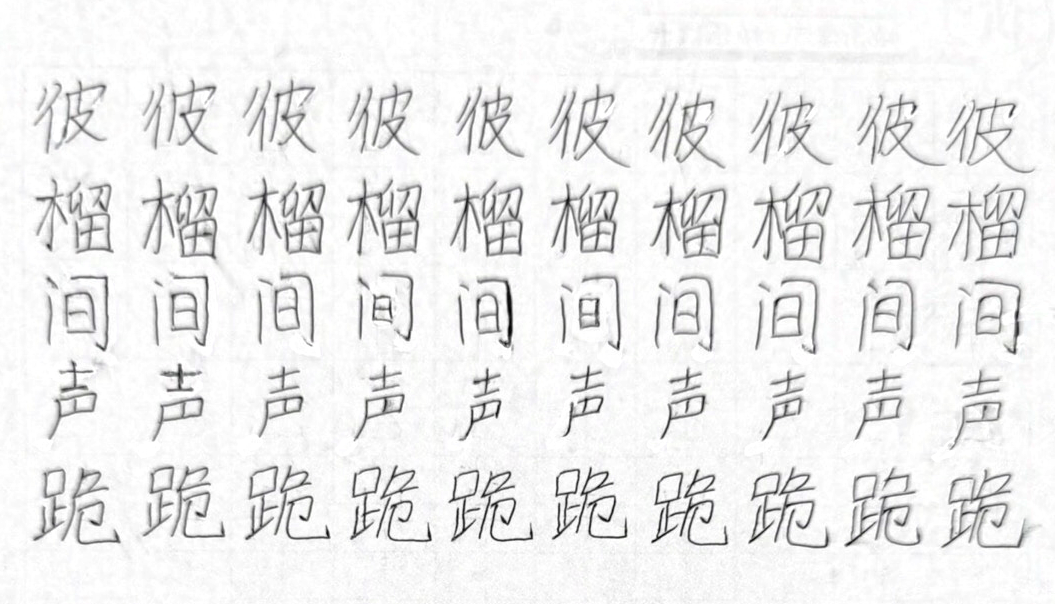 彼彼彼彼彼彼彼彼彼彼
榴榴榴榴榴榴榴榴榴榴
间间间间间间间间间间
声声声声声声声声声声
跪跪跪跪跪跪跪跪跪跪